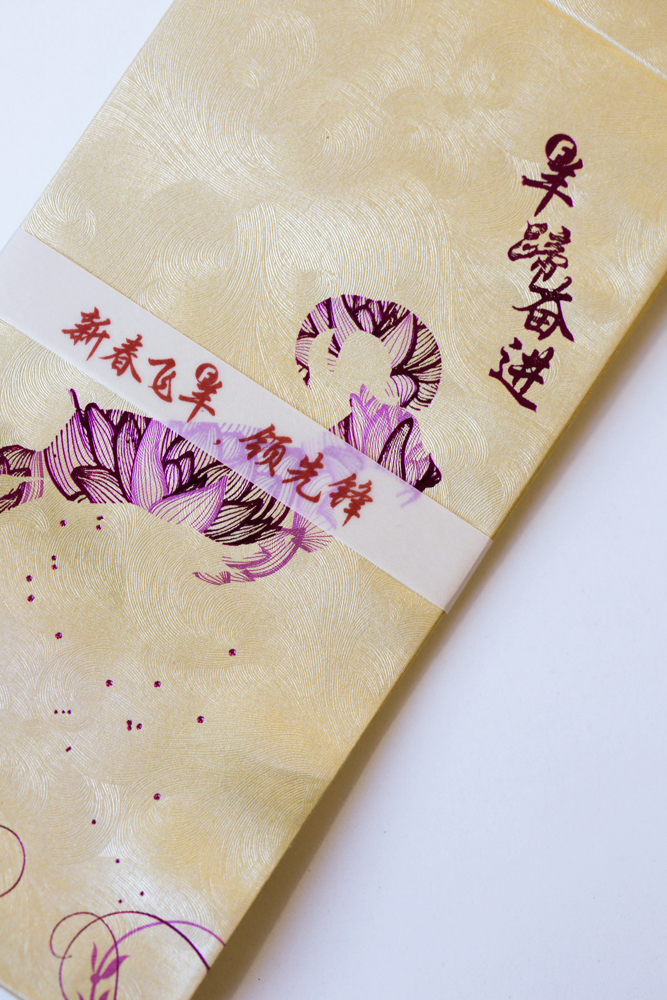 羊蹄奋进
新春飞羊·领先锋